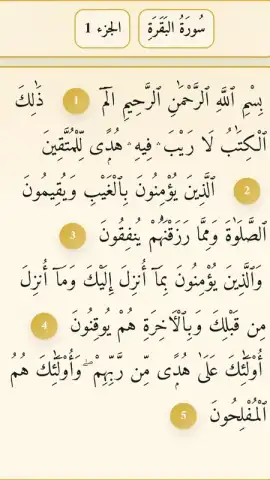 سُورَةُ البَقَرَةِ الجزء 1
بِسْمِ ٱللَّهِ ٱلرَّحْمَٰنِ ٱلرَّحِيمِ الٓمٓ 1 ذَٰلِكَ
ٱلْكِتَٰبُ لَا رَيْبَ ۛ فِيهِ ۛ هُدًى لِّلْمُتَّقِينَ
2 ٱلَّذِينَ يُؤْمِنُونَ بِٱلْغَيْبِ وَيُقِيمُونَ
ٱلصَّلَوٰةَ وَمِمَّا رَزَقْنَٰهُمْ يُنفِقُونَ 3
وَٱلَّذِينَ يُؤْمِنُونَ بِمَآ أُنزِلَ إِلَيْكَ وَمَآ أُنزِلَ
مِن قَبْلِكَ وَبِٱلْءَاخِرَةِ هُمْ يُوقِنُونَ 4
أُو۟لَٰٓئِكَ عَلَىٰ هُدًى مِّن رَّبِّهِمْ ۖ وَأُو۟لَٰٓئِكَ هُمُ
ٱلْمُفْلِحُونَ 5